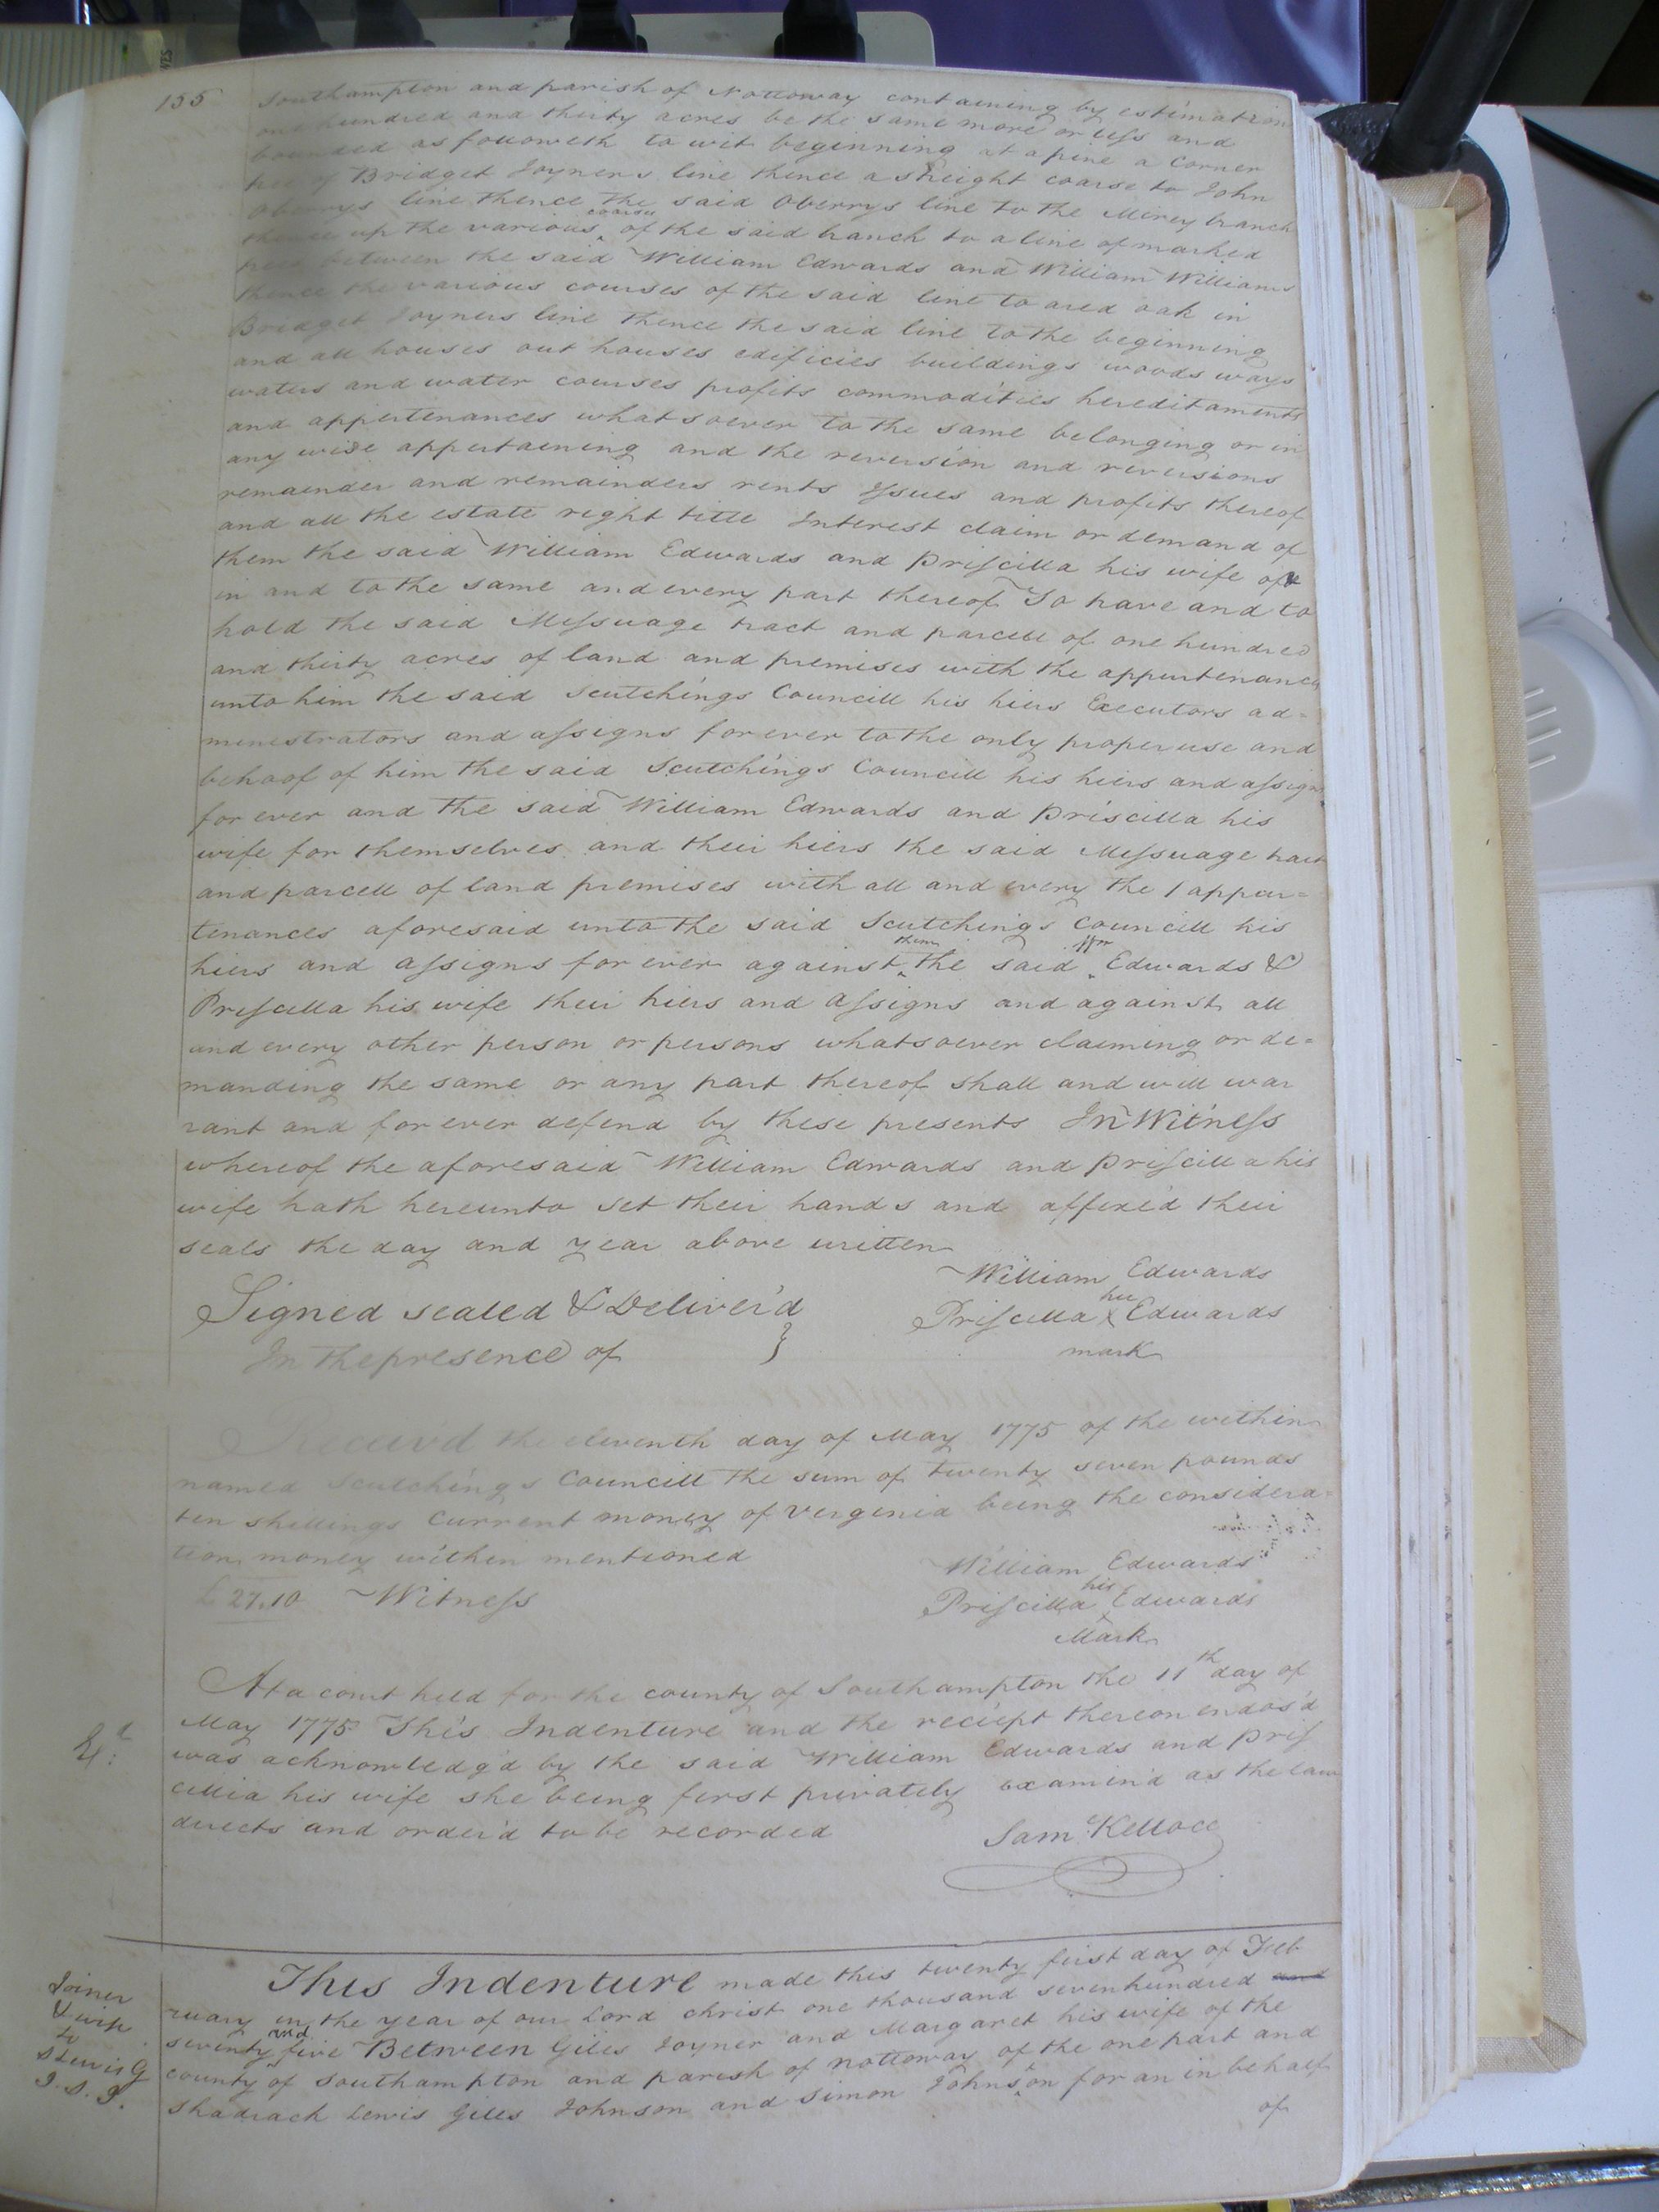 155
Southampton and parish of Nottoway containing by estimation
one hundred and thirty acres be the same more or less and
bounded as followeth to wit beginning at a pine a Corner
tree of Bridget Joyners line thence a streight coarse to John
Oberrys line thence the said Oberrys line to the Mirey branch
thence up the various courses of the said branch to a line of marked
trees between the said William Edwards and William Williams
thence the various courses of the said line to a red oak in
Bridget Joyners line thence the said line to the beginning
and all houses out houses edificies buildings woods ways
waters and water courses profits commodities hereditaments
and appertenances whatsoever to the same belonging or in
any wise appertaening and the reversion and reversions
remainder and remainders rents Issues and profits thereof
and all the estate right title Interest claim or demand of
them the said William Edwards and Priscilla his wife of
in and to the same and every part thereof To have and to
hold the said Messuage tract and parcell of one hundred
and thirty acres of land and premises with the appurtenances
unto him the said Scutchings Councill his hiers Executors ad=
menestrators and assigns forever to the only proper use and
behoof of him the said Scutchings Councill his hiers and assigns
for ever and the said William Edwards and Priscilla his
wife for themselves and their hiers the said Messuage tract
and parcell of land premises with all and every the appur=
tenances aforesaid unto the said Scutchings Councill his
hiers and assigns for ever against them the said Wm Edwards &
Priscilla his wife their hiers and assigns and against all
and every other person or persons whatsoever claiming or de=
manding the same or any part thereof shall and will war
rant and for ever defend by these presents In Witness
whereof the aforesaid William Edwards and Priscilla his
wife hath hereunto set their hands and affixed their
seals the day and year above written
William Edwards
Signed sealed & Deliver'd
Priscilla her X Edwards
In the presence of }
mark
Receivd the eleventh day of May 1775 of the within
named Scutchings Councill the sum of twenty seven pounds
ten shillings Current money of Verginia being the considera=
tion money within mentioned
William Edwards
£27.10 Witness
Priscilla his X Edwards
Mark
At a court held for the county of Southampton the 11th day of
May 1775 This Indenture and the reciept thereon endos'd
was acknowledg'd by the said William Edwards and Pris
cillia his wife she being first privately examin'd as the law
directs and order'd to be recorded
Sam Kelloce
This Indenture made this twenty first day of Feb
ruary in the year of our Lord christ one thousand seven hundred and
seventy and five Between Giles Joyner and Margaret his wife of the
county of Southampton and parish of Nottoway of the one part and
Shadrack Lewis Giles Johnson and Simon Johnson for an in behalf
of
Joiner
& wife
to
S Lewis G
J. S. J.